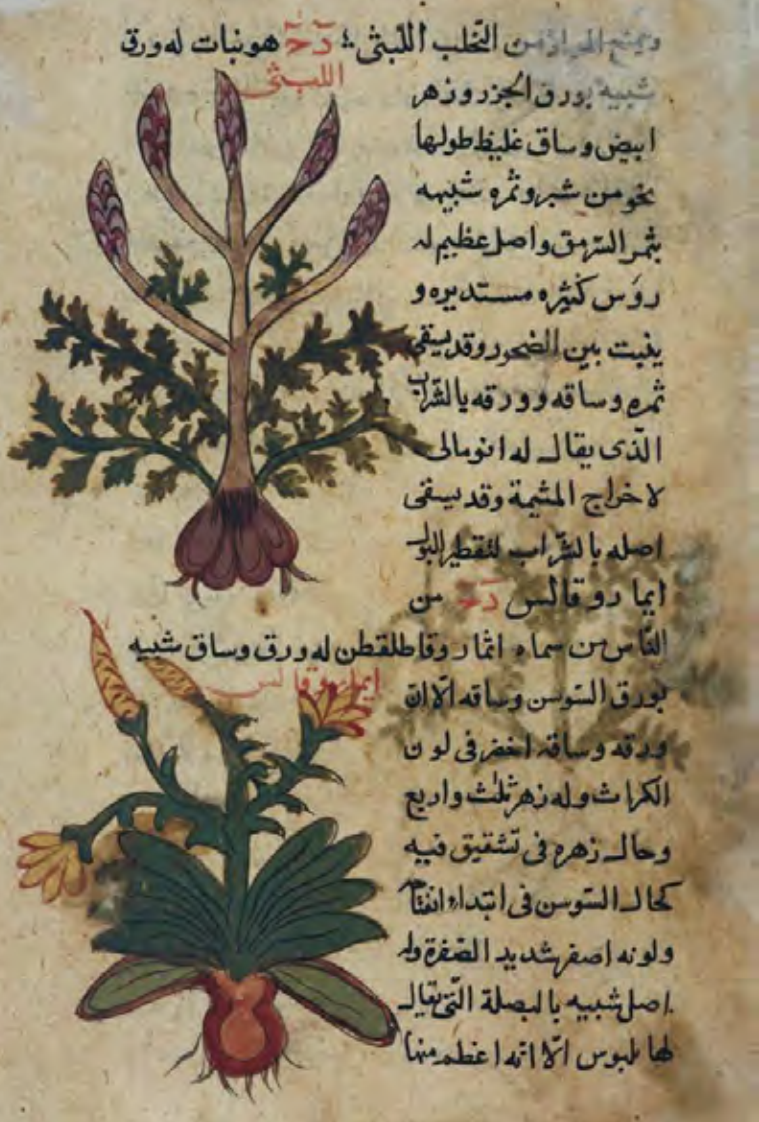 ويمنع من التحلب اللبثى ؛ دَحَ هو نبات له ورق
اللبثى
شبيه بورق الجزر وزهر
ابيض وساق غليظ طولها
نحو من شبر وثمره شبيهه
بثمر السرمق واصل عظيم له
رؤس كثيره مستديره و
ينبت بين الصخور وقد يسقى
ثمره وساقه وورقه بالشراب
الذى يقال له انومالى
لاخراج المشيمة وقد يسقى
اصله بالشراب لتقطير البول
ايماروقالس دَحَ من
الناس من سماه انماروقاطلقطن له ورق وساق شبيه
ايماروقالس
بورق السوسن وساقه الا ان
ورقه وساقه اخضر فى لون
الكراث وله زهر ثلث واربع
وحال زهره فى تشقيق فيه
كحال السوسن فى ابتداء انفتاح
ولونه اصفر شديد الصفرة وله
اصل شبيه بالبصلة التى يقال
لها بلبوس الا انه اعظم منها